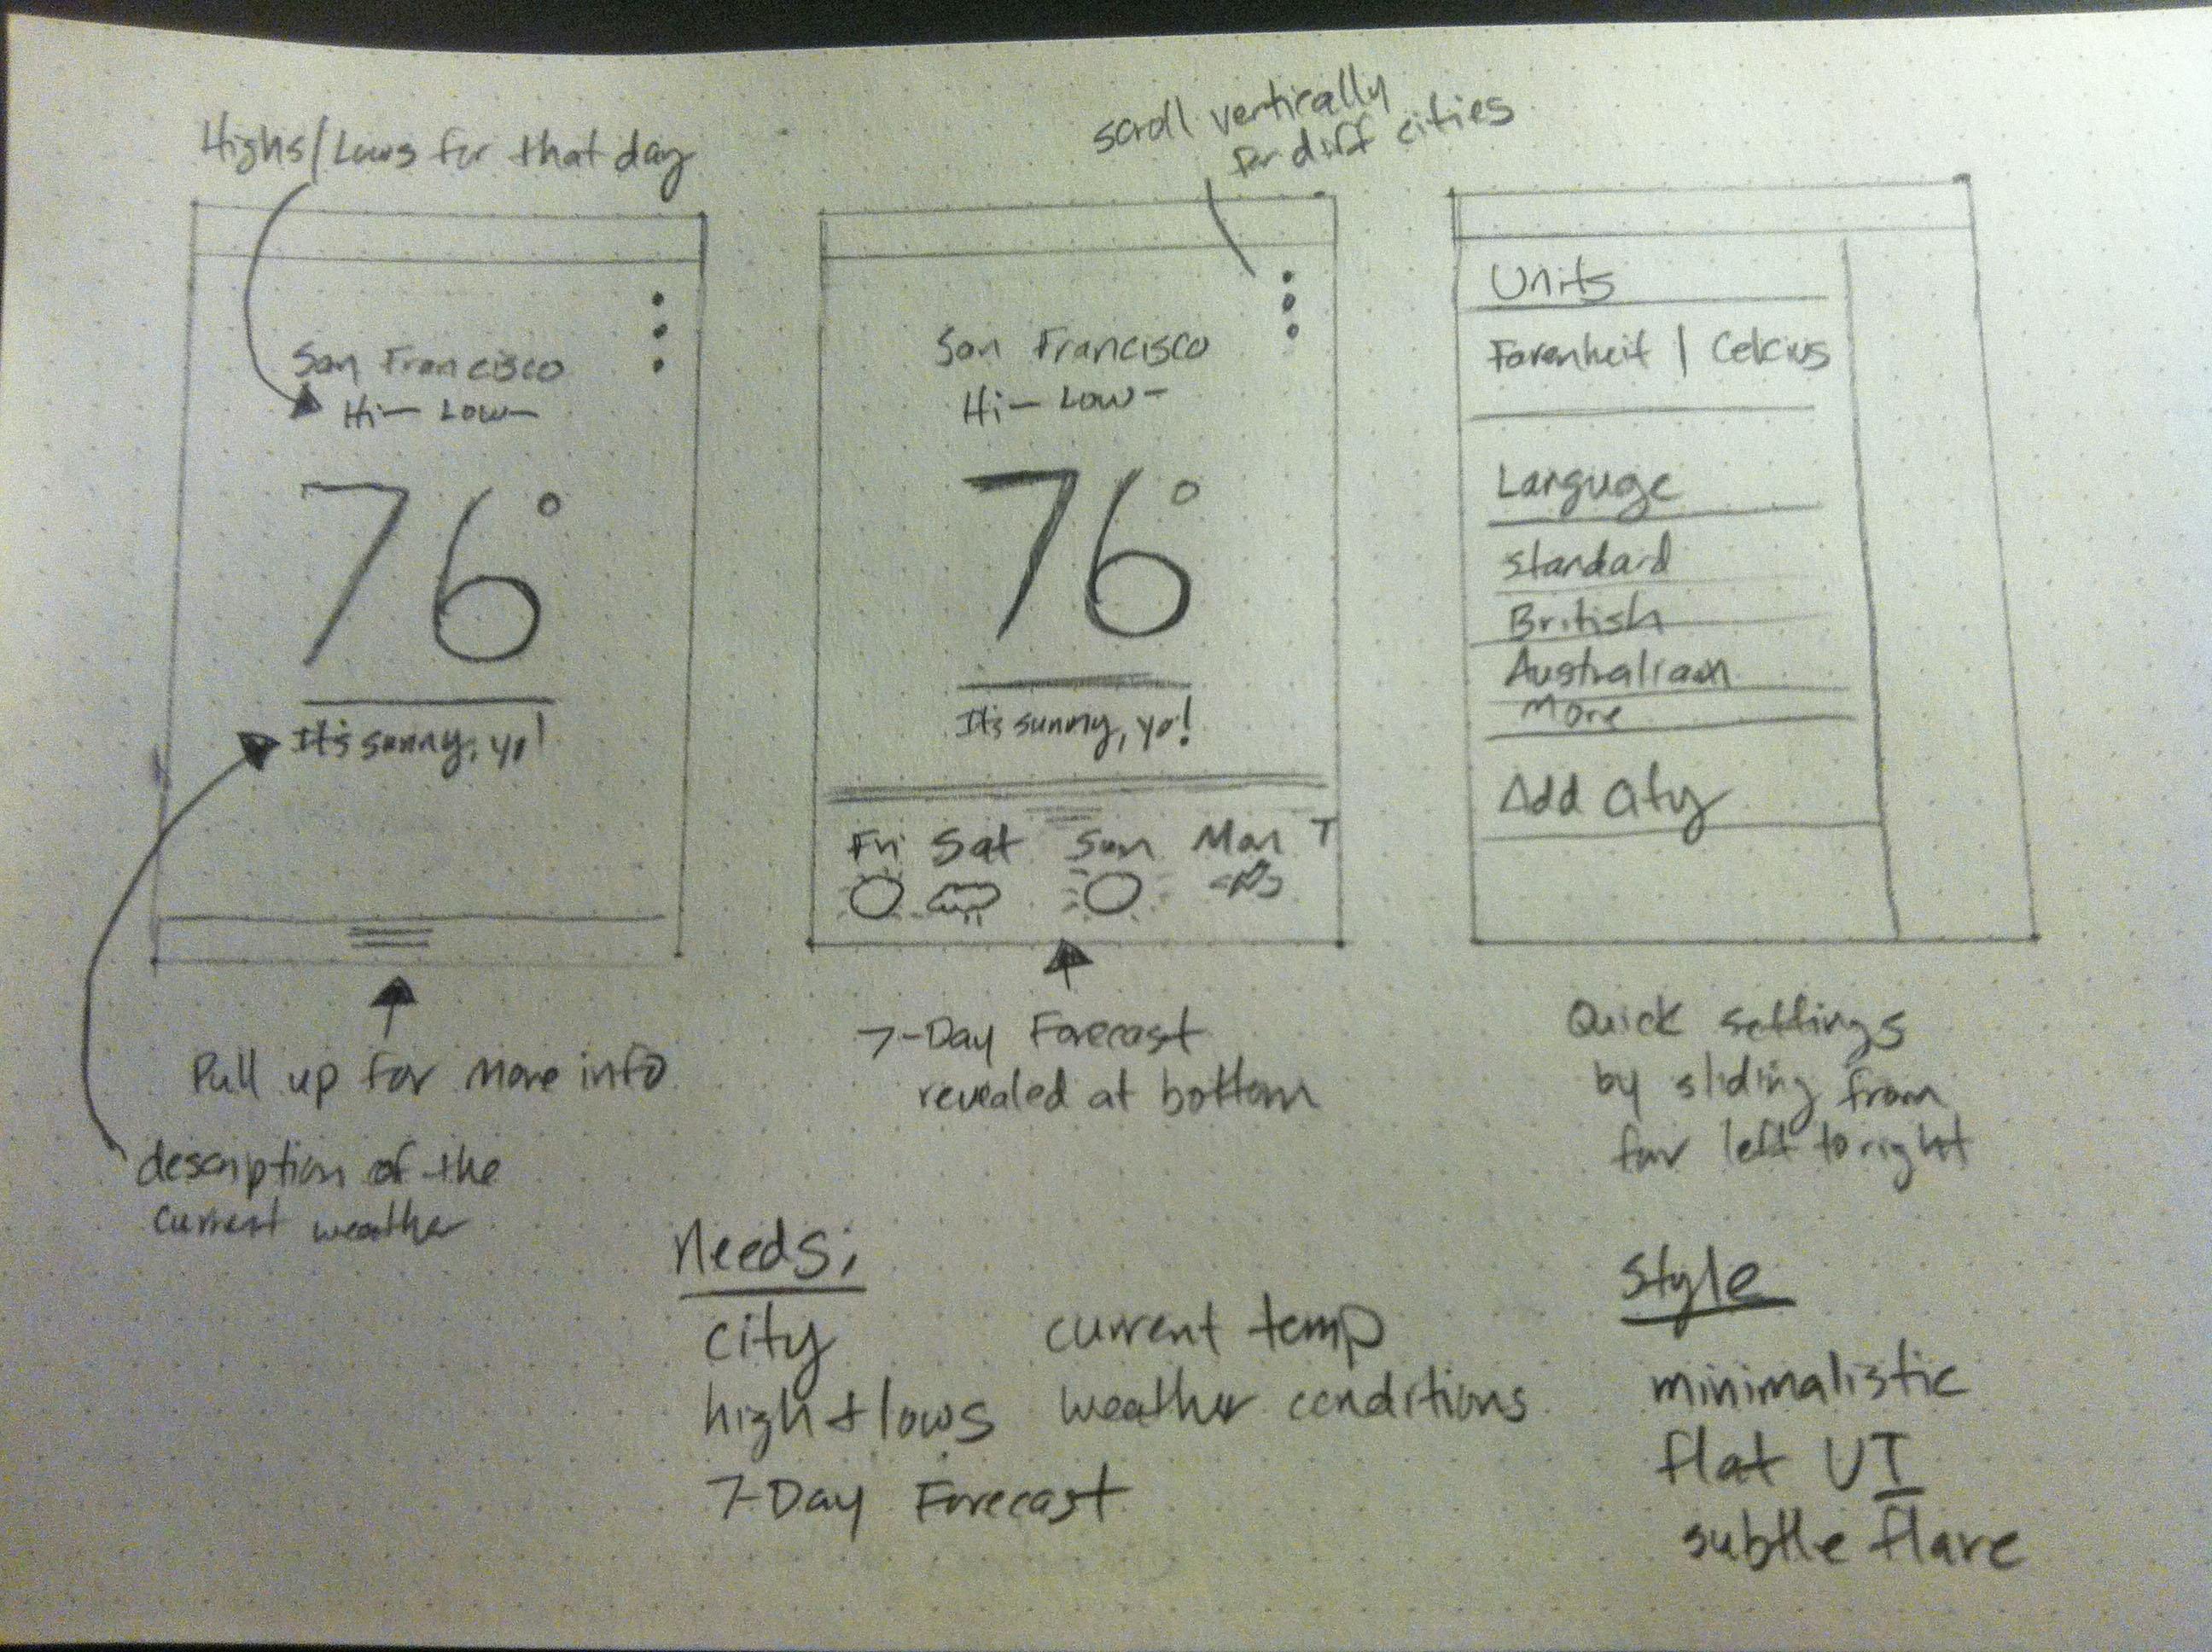 Highs/Lows for that day
San Francisco
Hi— Low—
76°
It's sunny, yo!
Pull up for more info
description of the
current weather
scroll vertically
for diff cities
San Francisco
Hi— Low—
76°
It's sunny, yo!
Fri Sat Sun Mon T
7-Day Forecast
revealed at bottom
Units
Farenheit | Celcius
Languge
Standard
British
Australiaan
More
Add City
Quick settings
by sliding from
far left to right
Needs;
city current temp
high + lows weather conditions
7-Day Forecast
Style
minimalistic
flat UI
subtle flare